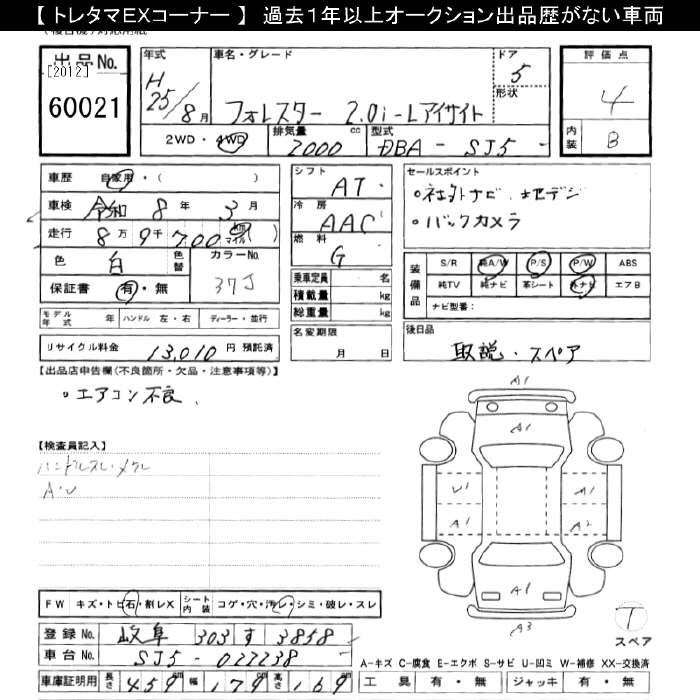 【 トレタマEXコーナー 】 過去1年以上オークション出品歴がない車両
出品No.
[2012]
60021
年式
H
25/8月
車名・グレード
フォレスター 2.0i-Lアイサイト
ドア
5
形状
評価点
4
内装
B
2WD・4WD
排気量
2000
cc
型式
DBA - SJ5 -
車歴 自家用・( )
車検 令和 8年 3月
走行 8万9千700 km マイル ( )
色 白
色替
カラーNo.
37J
保証書 有・無
モデル年式 年
ハンドル 左・右
ディーラー・並行
リサイクル料金 13,010 円 預託済
シフト
AT
冷房
AAC
燃料
G
乗車定員 名
積載量 kg
総重量 kg
名変期限
月 日
セールスポイント
・社外ナビ、地デジ
・バックカメラ
装備品
S/R 純A/W P/S P/W ABS
純TV 純ナビ 革シート 外ナビ エアB
ナビ型番:
後日品
取説・スペア
【出品店申告欄(不良箇所・欠品・注意事項等)】
・エアコン不良、
【検査員記入】
ハンドルスレ・メクレ
A・U
A1
A1
U1
A1
A1
A2
A1
A3
T
スペア
FW キズ・トビ石・割レX
シート内装 コゲ・穴・汚レ・シミ・破レ・スレ
登録No. 岐阜 303 す 3858
車台No. SJ5-027238
車庫証明用 長さ 459 cm 幅 179 cm 高さ 169 cm
A-キズ C-腐食 E-エクボ S-サビ U-凹ミ W-補修 XX-交換済
工具 有・無 ジャッキ 有・無